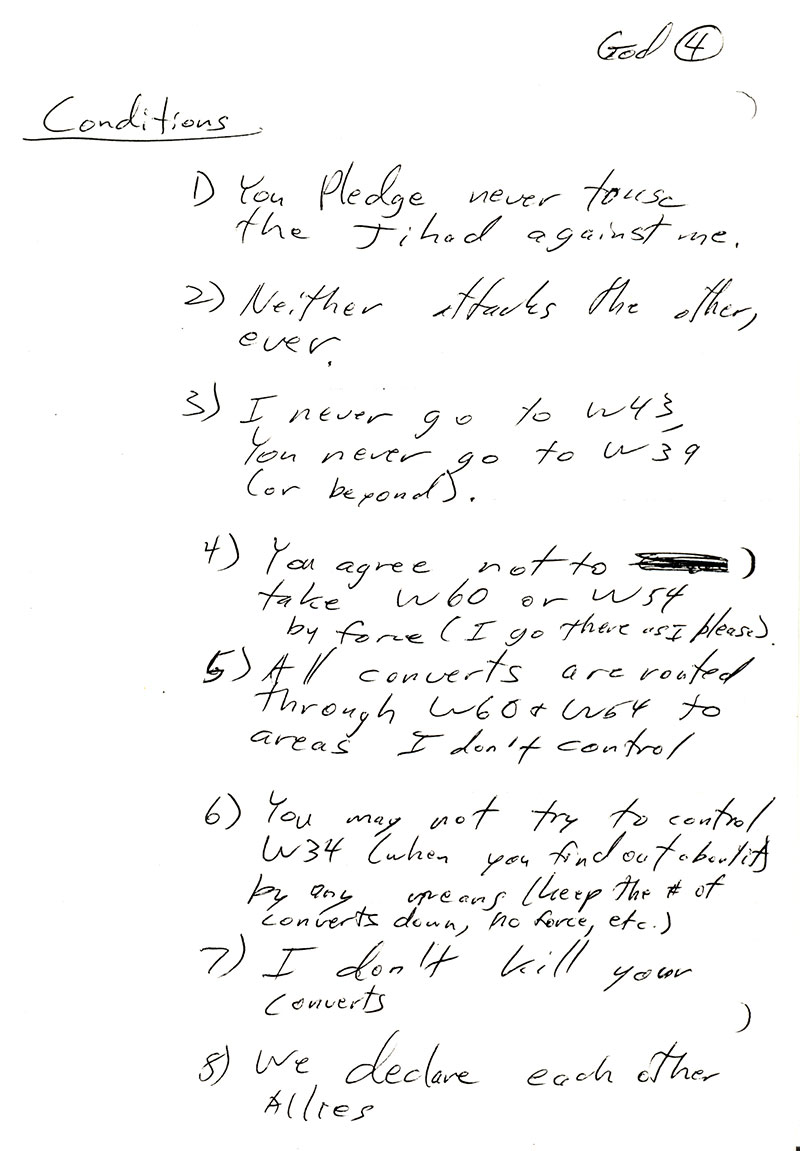 God ④
Conditions
1) You Pledge never to use
the Jihad against me.
2) Neither attacks the other,
ever.
3) I never go to W43,
You never go to W39
(or beyond).
4) You agree not to
take W60 or W54
by force (I go there as I please).
5) All converts are routed
through W60 & W54 to
areas I don't control
6) You may not try to control
W34 (when you find out about it)
by any means (keep the # of
converts down, no force, etc.)
7) I don't kill your
converts
8) We declare each other
Allies